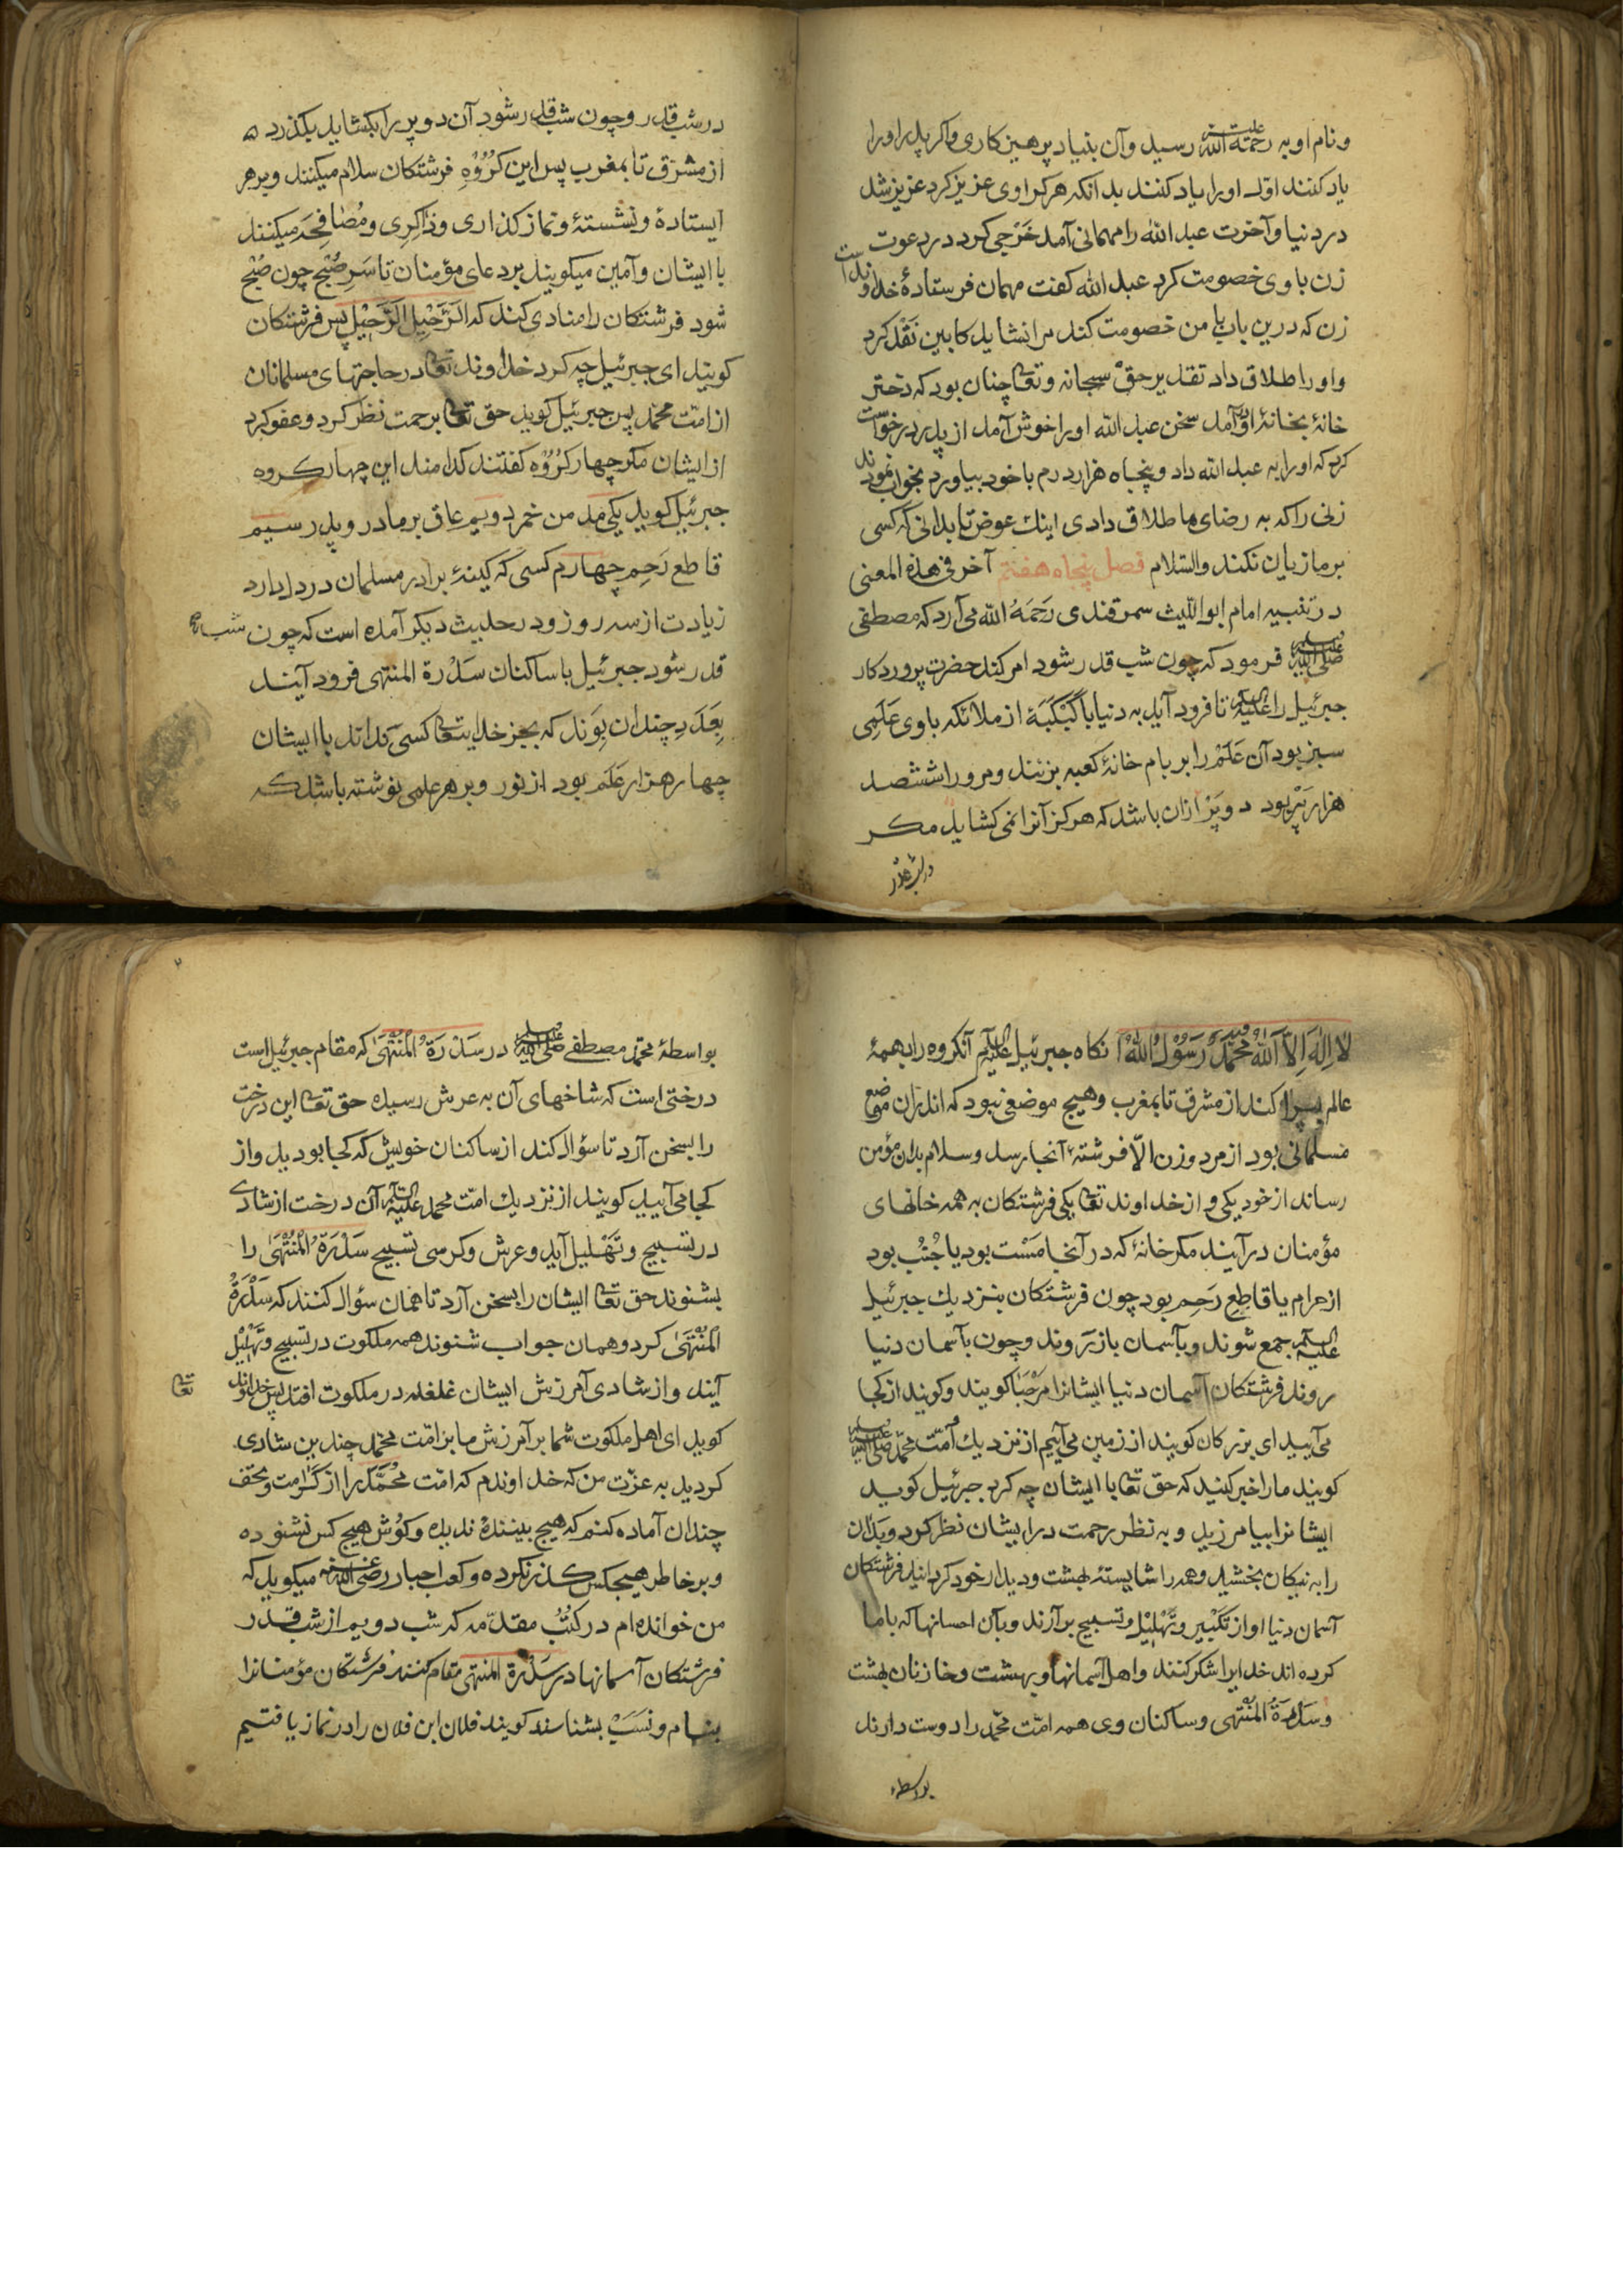 و نام او به رحمة الله علیه رسید و آن بنیاد پرهیزکاری و اکر پدر او را
یاد کنند اوّل او را یاد کنند بدانکه هر کرا وی عزیز کرد عزیز شد
در دنیا و آخرت عبد الله را مهمانی آمد خَرْجی کرد در دعوت
زن با وی خصومت کرد عبد الله کفت مهمان فرستادهٔ خداوندست
زن که درین باب با من خصومت کند مرا نشاید کابین نَقْد کرد
و او را طلاق داد تقدیر حقّ سبحانه و تعا چنان بود که دختر
خانهٔ بخانهٔ او آمد سخن عبد الله او را خوش آمد از پدر درخواست
کرد که او را به عبد الله داد و پنجاه هزار درم با خود بیاورد بخواب نمودند
زنی را که به رضای ما طلاق دادی اینك عوض تا بدانی که کسی
بر ما زیان نکند والسّلام فصل پنجاه هفتم آخر فی هذه المعنی
در تفسیر امام ابو اللّیث سمرقندی رَحَمَهُ الله می آرد که مصطفی
صلی الله علیه وسلم فرمود که چون شب قدر شود امر کند حضرت پروردکار
جبرئیل را علیه السلام تا فرود آید به دنیا با کَبْکَبَهٔ از ملائکه با وی عَلَمِی
سبز بود آن عَلَمْ را بر بام خانهٔ کعبه بزنند و مرورا ششصد
هزار پَرْ بود دو پَرْ ازان باشد که هرکز آنرا نمی کشاید مکر
در شب قدر
در شب قدر و چون شب قدر شود آن دو پر را بکشاید بکذرد
از مشرق تا بمغرب پس این کُرُوْهِ فرشتکان سلام میکنند و بر هر
ایستادهٔ و نشستهٔ و نماز کذاری و ذاکِری و مُصافِحَه میکنند
با ایشان و آمین میکویند بر دعای مؤمنان تا سَرِ صُبْح چون صُبْح
شود فرشتکان را منادی کند که الرَّحِیْل الرَّحِیْل پس فرشتکان
کویند ای جبرئیل چه کرد خداوند تعا در حاجتهای مسلمانان
از امّت محمّد پس جبرئیل کوید حق تعا برحمت نظر کرد و عفو کرد
از ایشان مکر چهار کُرُوْه کفتند کدامند این چهار کروه
جبرئیل کوید یکی مدمن خمر دویم عاق بر مادر و پدر سیم
قاطع رَحِم چهارم کسی که کینهٔ برادر مسلمان در دل دارد
زیادت از سه روز و در حدیث دیکر آمده است که چون شب
قدر شود جبرئیل با ساکنان سَدْرة المنتهی فرود آیند
بِعَدَدِ چندان بِوَند که بجز خدایتعا کسی نداند با ایشان
چهار هزار عَلَم بود از نور و بر هر علمی نوشته باشد که
لَا اِلٰهَ اِلَّا اللّٰهُ مُحَمَّدٌ رَسُوْلُ اللّٰهِ آنکاه جبرئیل علیه السلام آنکروه را بهمهٔ
عالم بپرا کند از مشرق تا بمغرب و هیچ موضعی نبود که اندران موضع
مسلمانی بود از مرد و زن الّا فرشتهٔ آنجا رسد و سلام بدان مؤمن
رساند از خود یکی و از خداوند تعا یکی فرشتکان به همه خانهای
مؤمنان در آیند مکر خانهٔ که در آنجا مَسْت بود یا جُنُب بود
از حرام یا قاطعِ رَحِم بود چون فرشتکان بنزدیك جبرئیل
علیه السلام جمع شوند و بآسمان باز رَوند و چون بآسمان دنیا
روند فرشتکان آسمان دنیا ایشانرا مَرْحَبا کویند و کویند از کجا
می آیید ای بزرکان کویند از زمین می آییم از نزدیك اُمّت محمّد صلی الله علیه وسلم
کویند ما را خبر کنید که حق تعا با ایشان چه کرد جبرئیل کوید
ایشانرا بیامرزید و به نظر رحمت در ایشان نظر کرد و بَدان
را به نیکان بخشید و همه را شایستهٔ بهشت و دیدار خود کردانید فرشتکان
آسمان دنیا اواز تکْبِیر و تَهْلِیْل و تسبیح بر آرند و بآن احسانها که با ما
کرده اند خدایرا شکر کنند و اهل آسمانها و بهشت و خازنان بهشت
و سَدْرَةُ المُنْتَهی و ساکنان وی همه امّت محمّد را دوست دارند
بواسطهٔ
بواسطهٔ محمّد مصطفی صلی الله علیه وسلم در سَدْرَةُ الْمُنْتَهَی که مقام جبرئیل است
درختی است که شاخهای آن به عرش رسیده حق تعا این درخت
را بسخن آرد تا سؤال کند از ساکنان خویش که کجا بودید و از
کجا می آیید کویند از نزدیك امّت محمد علیه السلام آن درخت از شادی
در تسبیح و تَهْلیل آید و عرش و کرسی تسبیح سَدْرَةُ الْمُنْتَهَی را
بشنوند حق تعا ایشان را بسخن آرد تا همان سؤال کنند که سَدْرَةُ
الْمُنْتَهَی کرد و همان جواب شنوند همه ملکوت در تسبیح و تَهْلِیْل
آیند و از شادی آمرزش ایشان غلغله در ملکوت افتد پس خداوند تعا
کوید ای اهل ملکوت شما بر آمرزش ما بر امّت محمّد چندین شادی
کردید به عزّت من که خداوندم که امّت مُحَمَّد را از کَرامت و تحف
چندان آماده کنم که هیچ بینندهٔ ندیده و کوش هیچ کس نشنوده
و بر خاطر هیچکس کذر نکرده و کعب احبار رضی الله عنه میکوید که
من خوانده ام در کُتُبِ مقدّمه که شب دویم از شب قدر
فرشتکان آسمانها در سَدْرة المنتهی مقام کنند فرشتکان مؤمنانرا
بنام و نَسَبْ بشناسند کویند فلان ابن فلان را در نماز یافتیم